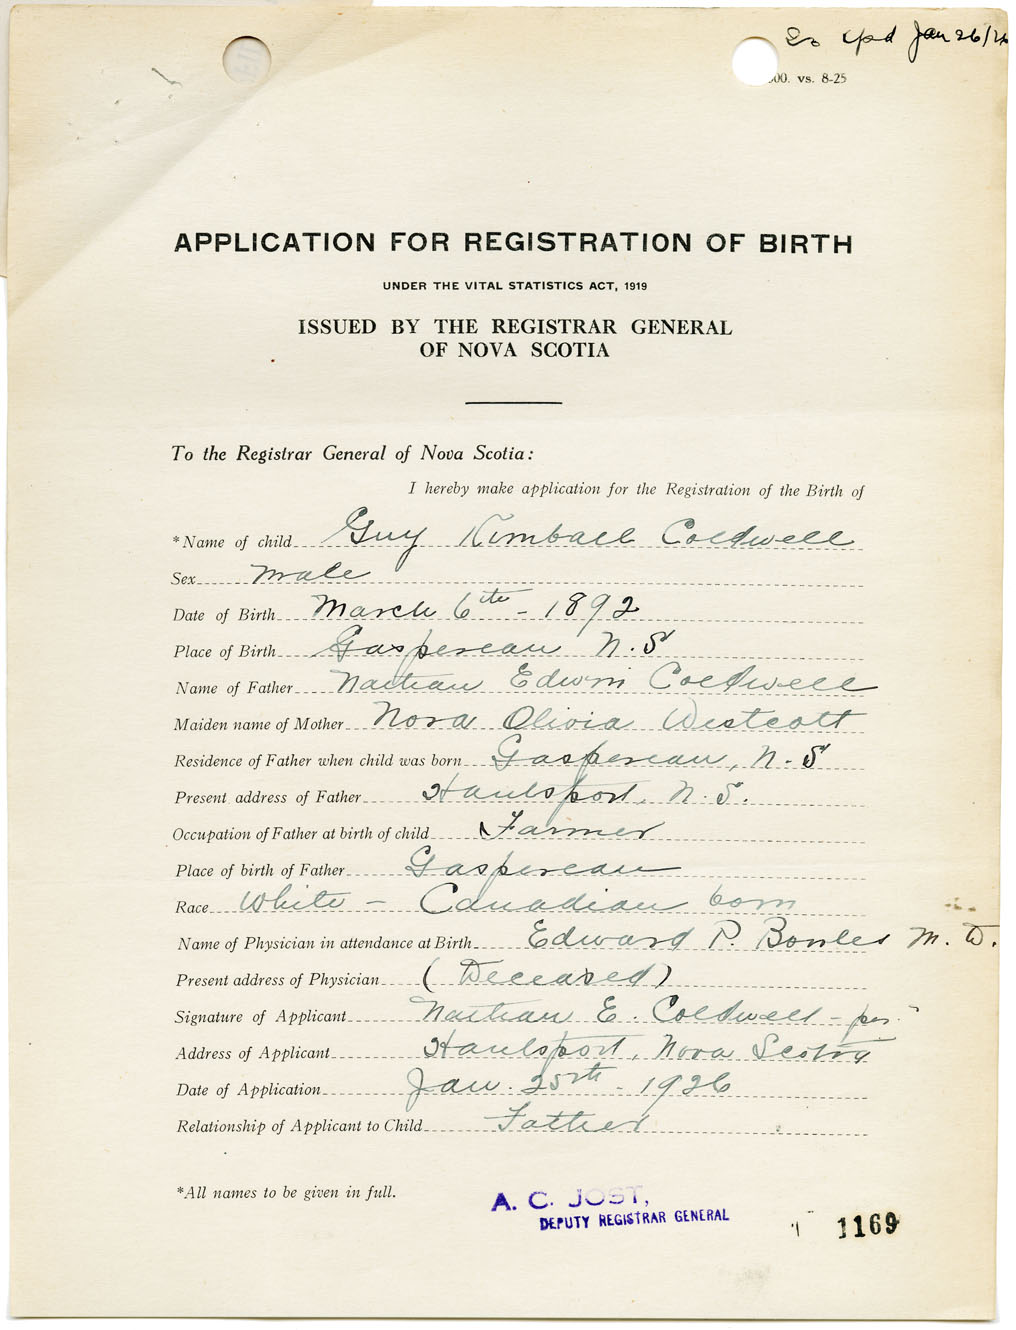 Jan 26/26
00. vs. 8-25
APPLICATION FOR REGISTRATION OF BIRTH
UNDER THE VITAL STATISTICS ACT, 1919
ISSUED BY THE REGISTRAR GENERAL
OF NOVA SCOTIA
To the Registrar General of Nova Scotia:
I hereby make application for the Registration of the Birth of
*Name of child Guy Kimball Coldwell
Sex Male
Date of Birth March 6th - 1892
Place of Birth Gaspereau N.S
Name of Father Nathan Edwin Coldwell
Maiden name of Mother Nora Olivia Westcott
Residence of Father when child was born Gaspereau, N.S
Present address of Father Hantsport, N.S.
Occupation of Father at birth of child Farmer
Place of birth of Father Gaspereau
Race White - Canadian born
Name of Physician in attendance at Birth Edward P. Bowles M.D.
Present address of Physician (Deceased)
Signature of Applicant Nathan E. Coldwell - per
Address of Applicant Hantsport, Nova Scotia
Date of Application Jan. 25th - 1926
Relationship of Applicant to Child Father
*All names to be given in full.
A. C. JOST,
DEPUTY REGISTRAR GENERAL
1169